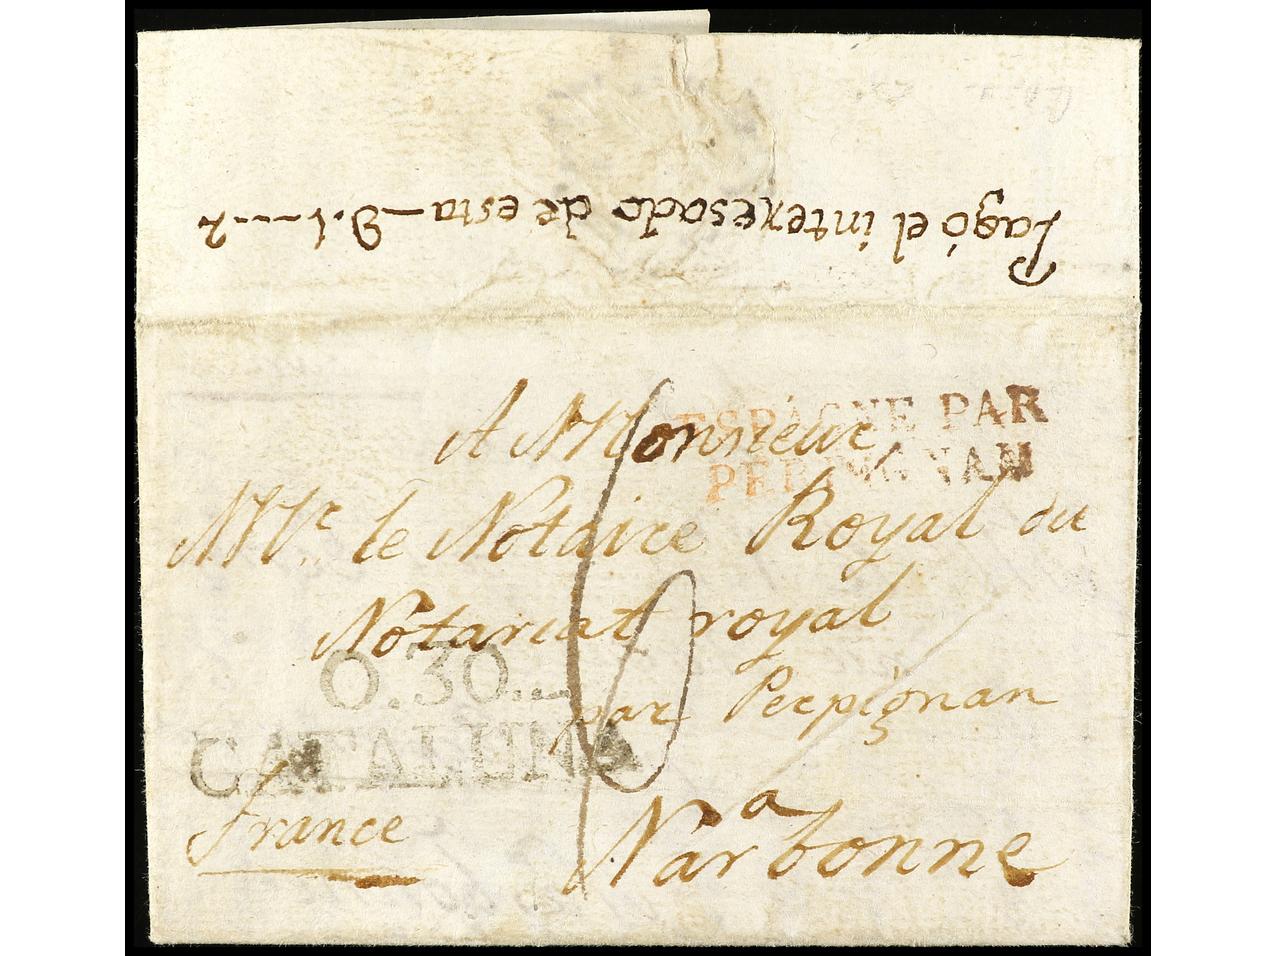 Pagó el interesado de esta
ESPAGNE PAR
PERPIGNAN
A Monsieur
Mr. le Notaire Royal du
Notariat royal
0.30...
par Perpignan
CATALUÑA
a
France
Narbonne